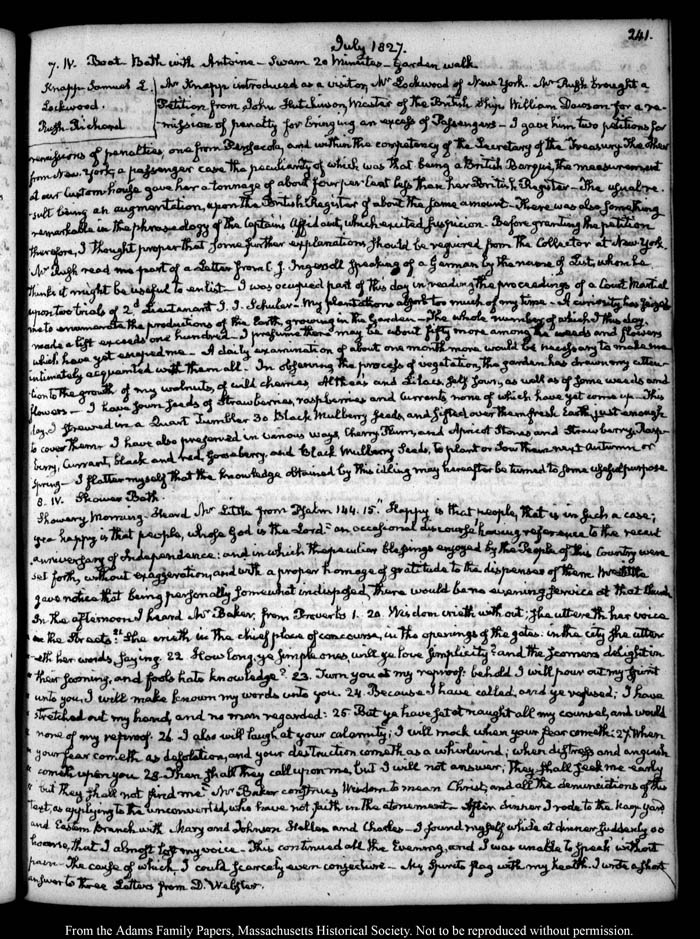 241.
July 1827.
7. IV. Boat Bath with Antoine - Swam 20 Minutes - Garden walk
Knapp Samuel L. Mr Knapp introduced as a visitor, Mr Lockwood of New York. Mr Rush brought a
Lockwood. Petition from John Hutchinson, Master of the British Ship William Dawson for a re-
Rush. Richard mission of penalty for bringing an excess of Passengers - I gave him two petitions for
remissions of penalties, one from Pensacola, and within the competency of the Secretary of the Treasury. The other
from New York, a passenger case the peculiarity of which was that being a British Barque, the measurement
at our Custom-house gave her a tonnage of about four per Cent less than her British Register - The usual re-
sult being an augmentation, upon the British Register of about the same amount - There was also something
remarkable in the phraseology of the Captain's Affidavit, which excited suspicion. Before granting the petition
therefore, I thought proper that some further explanations should be required from the Collector at New York.
Mr Rush read me part of a Letter from C. J. Ingersoll speaking of a German by the name of List, whom he
thinks it might be useful to enlist - I was occupied part of this day in reading the proceedings of a Court Martial
upon two trials of 2d Lieutenant I. I. Schuler - My plantations absorb too much of my time - A curiosity has seized
me to enumerate the productions of the Earth, growing in the Garden - The whole number of which I this day
made a list exceeds one hundred - I presume there may be about fifty more among the weeds and flowers
which have yet escaped me - A daily examination of about one month more would be necessary to make me
intimately acquainted with them all - In observing the process of vegetation, the garden has drawn my atten-
tion to the growth of my walnuts, of wild cherries, Altheas and Lilacs, self sown, as well as of some weeds and
flowers - I have sown seeds of Strawberries, raspberries and Currants, none of which have yet come up - This
day, I strewed in a Quart Tumbler 30 Black Mulberry seeds, and sifted over them fresh Earth, just enough
to cover them - I have also preserved in various ways Cherry, Plum, and Apricot Stones and Strawberry, Rasp-
berry, Currant, black and red, Gooseberry, and Black Mulberry Seeds, to plant or sow them next Autumn or
Spring - I flatter myself that the knowledge obtained by this idling may hereafter be turned to some useful purpose
8. IV. Shower Bath.
Showery Morning - Heard Mr Little from Psalm 144. 15. "Happy is that people, that is in such a case;
yea happy is that people, whose God is the Lord" an occasional discourse having reference to the recent
anniversary of Independence: and in which the peculiar blessings enjoyed by the People of this Country were
set forth, without exaggeration, and with a proper homage of gratitude to the dispenser of them. Mr Little
gave notice that being personally somewhat indisposed, there would be no evening service at that Church
In the afternoon I heard Mr Baker, from Proverbs 1. 20. Wisdom crieth without; she uttereth her voice
in the streets: 21. She crieth in the chief place of concourse, in the openings of the gates: in the city she utter-
eth her words, saying. 22. How long, ye simple ones, will ye love simplicity? and the scorners delight in
their scorning, and fools hate knowledge? 23. Turn you at my reproof: behold I will pour out my spirit
unto you, I will make known my words unto you. 24. Because I have called, and ye refused; I have
stretched out my hand, and no man regarded: 25 But ye have set at naught all my counsel, and would
none of my reproof: 26 I also will laugh at your calamity; I will mock when your fear cometh: 27 When
your fear cometh as desolation, and your destruction cometh as a whirlwind; when distress and anguish
cometh upon you 28. Then shall they call upon me, but I will not answer; They shall seek me early
but they shall not find me. Mr Baker construes Wisdom to mean Christ, and all the denunciations of the
text, as applying to the unconverted, who have not faith in the atonement - After dinner I rode to the Navy yard
and Eastern Branch with Mary and Johnson Hellen and Charles - I found myself while at dinner suddenly so
hoarse, that I almost lost my voice - This continued all the Evening, and I was unable to speak without
pain - The cause of which I could scarcely even conjecture - My Spirits flag with my health. I write a short
answer to three Letters from D. Webster.
From the Adams Family Papers, Massachusetts Historical Society. Not to be reproduced without permission.